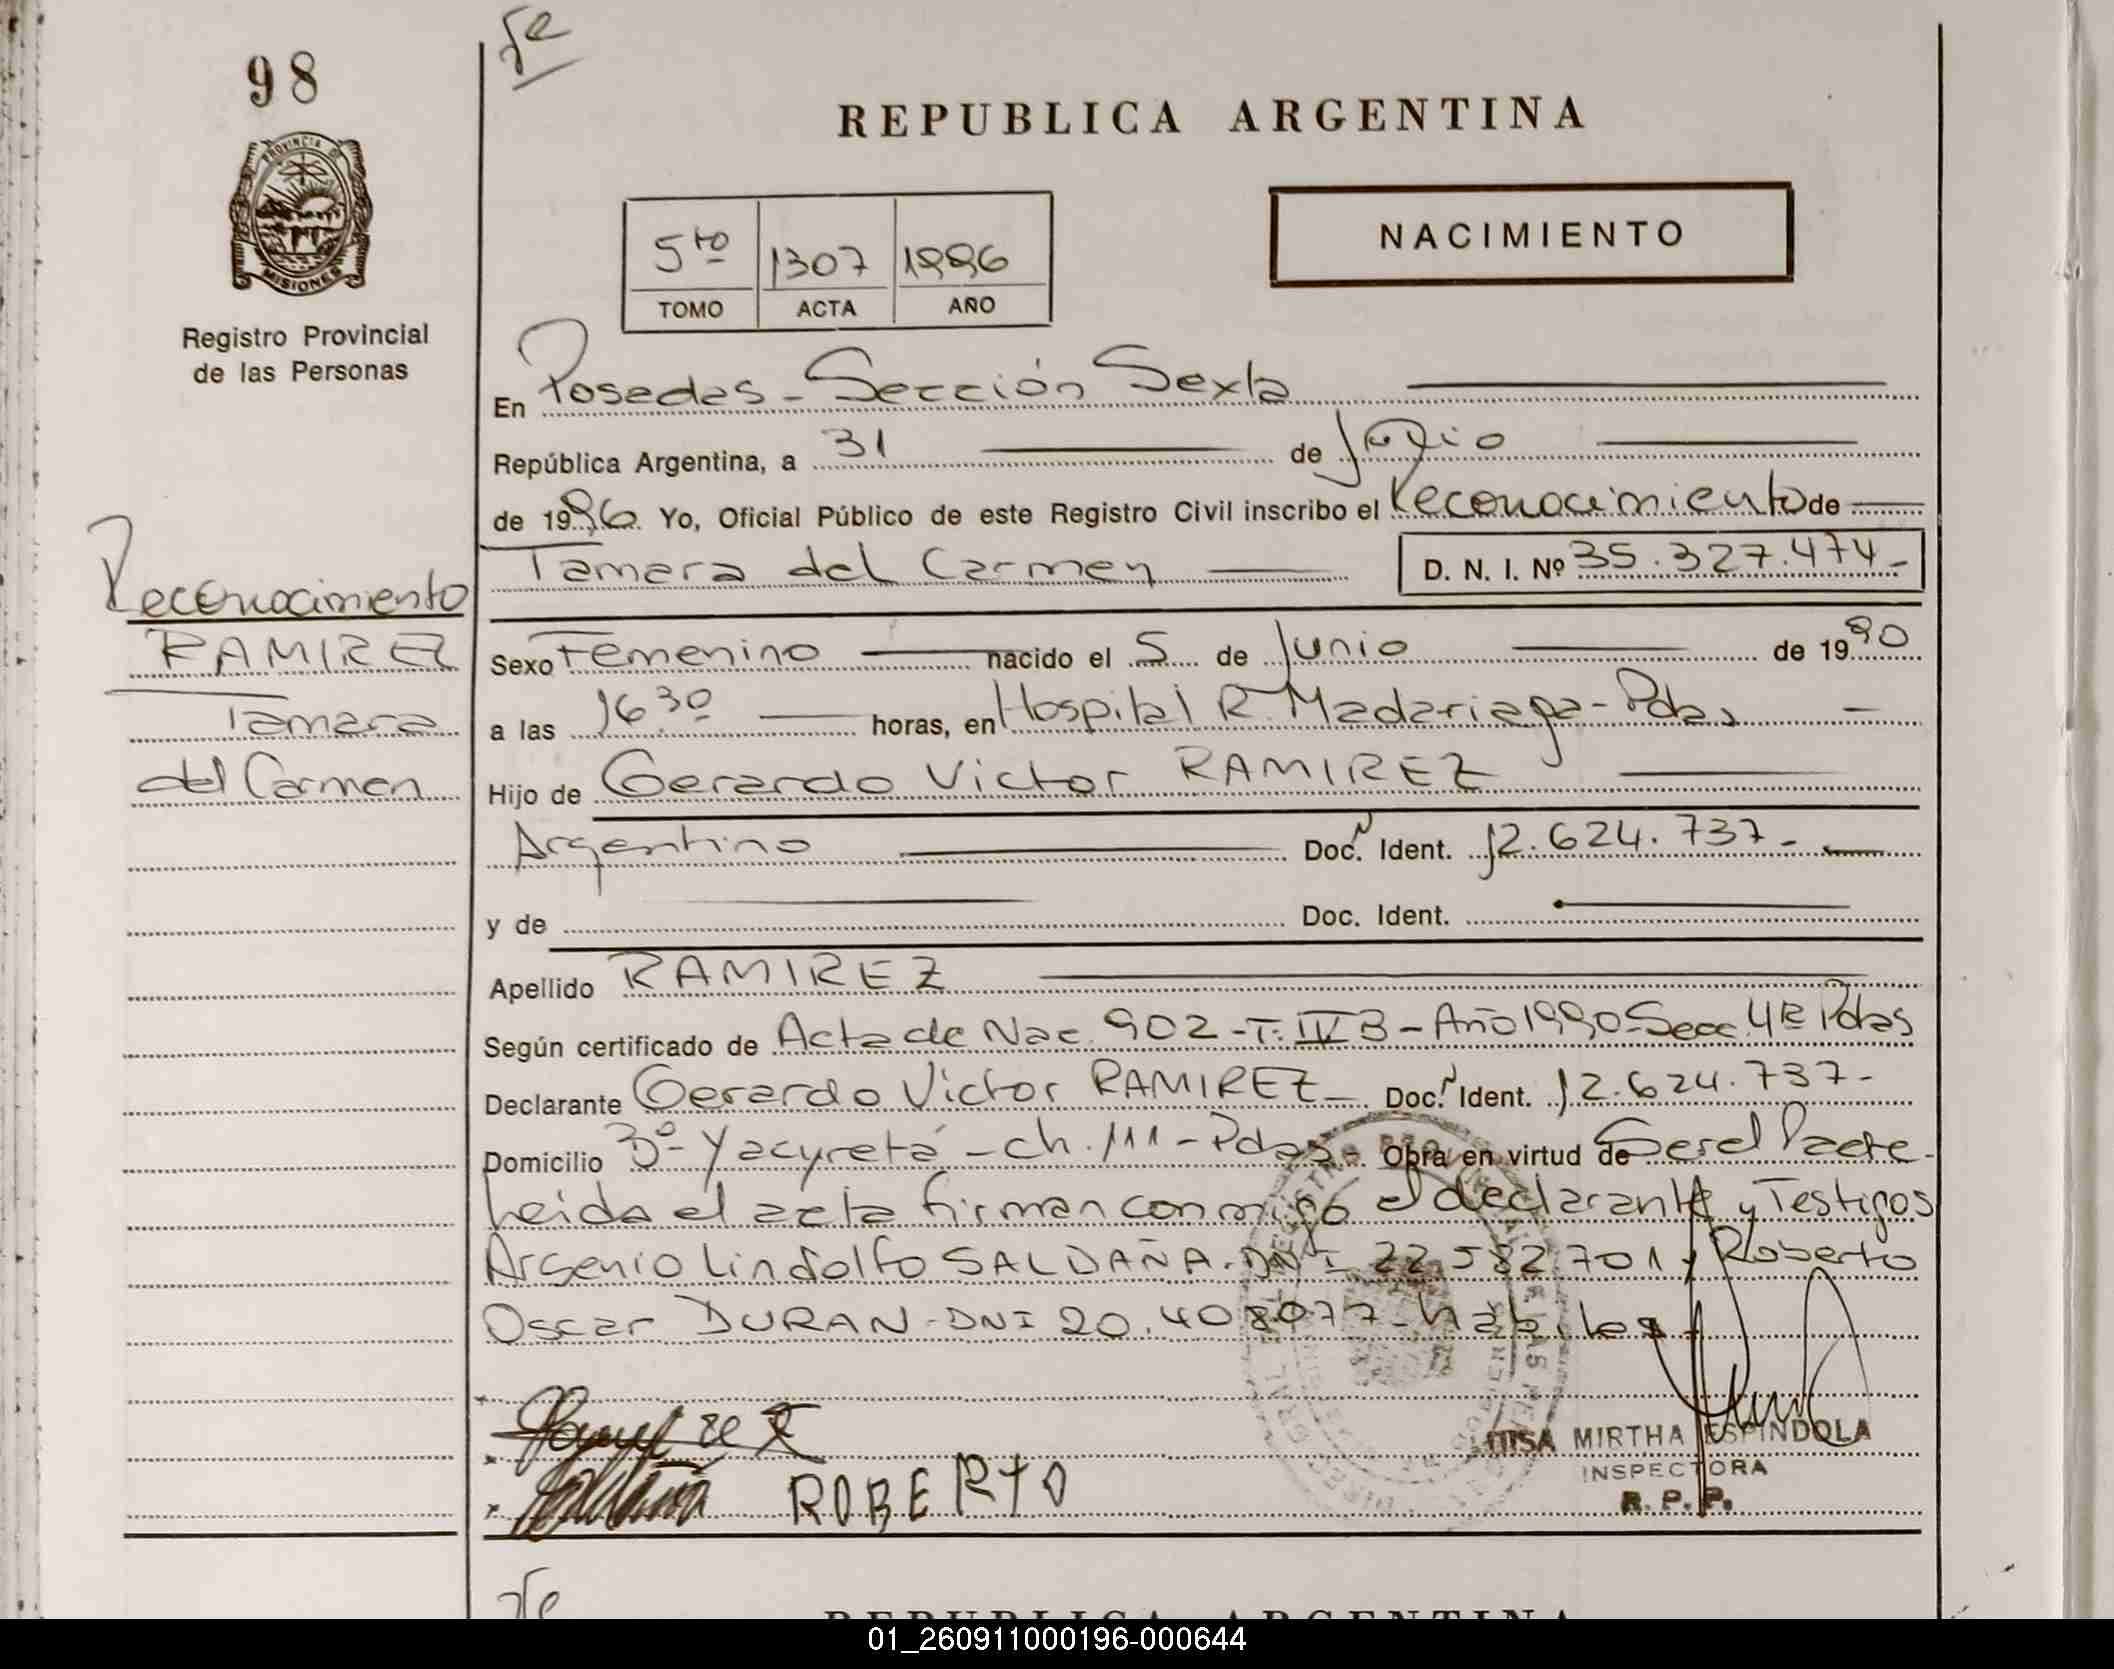 98
REPUBLICA ARGENTINA
NACIMIENTO
5to 1307 1996
TOMO ACTA AÑO
Registro Provincial
de las Personas
PROVINCIA DE
MISIONES
En Posadas - Sección Sexta
República Argentina, a 31 de Julio
de 1996 Yo, Oficial Público de este Registro Civil inscribo el Reconocimiento de
Tamara del Carmen D. N. I. Nº 35.327.474-
Reconocimiento
RAMIREZ
Tamara
del Carmen
Sexo Femenino nacido el 5 de Junio de 1990
a las 16 30 horas, en Hospital R. Madariaga - Pdas
Hijo de Gerardo Victor RAMIREZ
Argentino Doc. Ident. 12.624.737-
y de Doc. Ident.
Apellido RAMIREZ
Según certificado de Acta de Nac. 902 - T: IV B - Año 1990 - Secc 4ta Pdas
Declarante Gerardo Victor RAMIREZ - Doc. Ident. 12.624.737-
Domicilio Bº Yacyretá - ch. 111 - Pdas - Obra en virtud de Ser el Padre -
Leida el acta firman conmigo el declarante y Testigos
Arsenio Lindolfo SALDAÑA. DNI 22.582.701 y Roberto
Oscar DURAN - DNI 20.408.077 - habiles
ROBERTO
MIRTHA ESPINDOLA
INSPECTORA
R. P. P.
REPUBLICA ARGENTINA
01_260911000196-000644